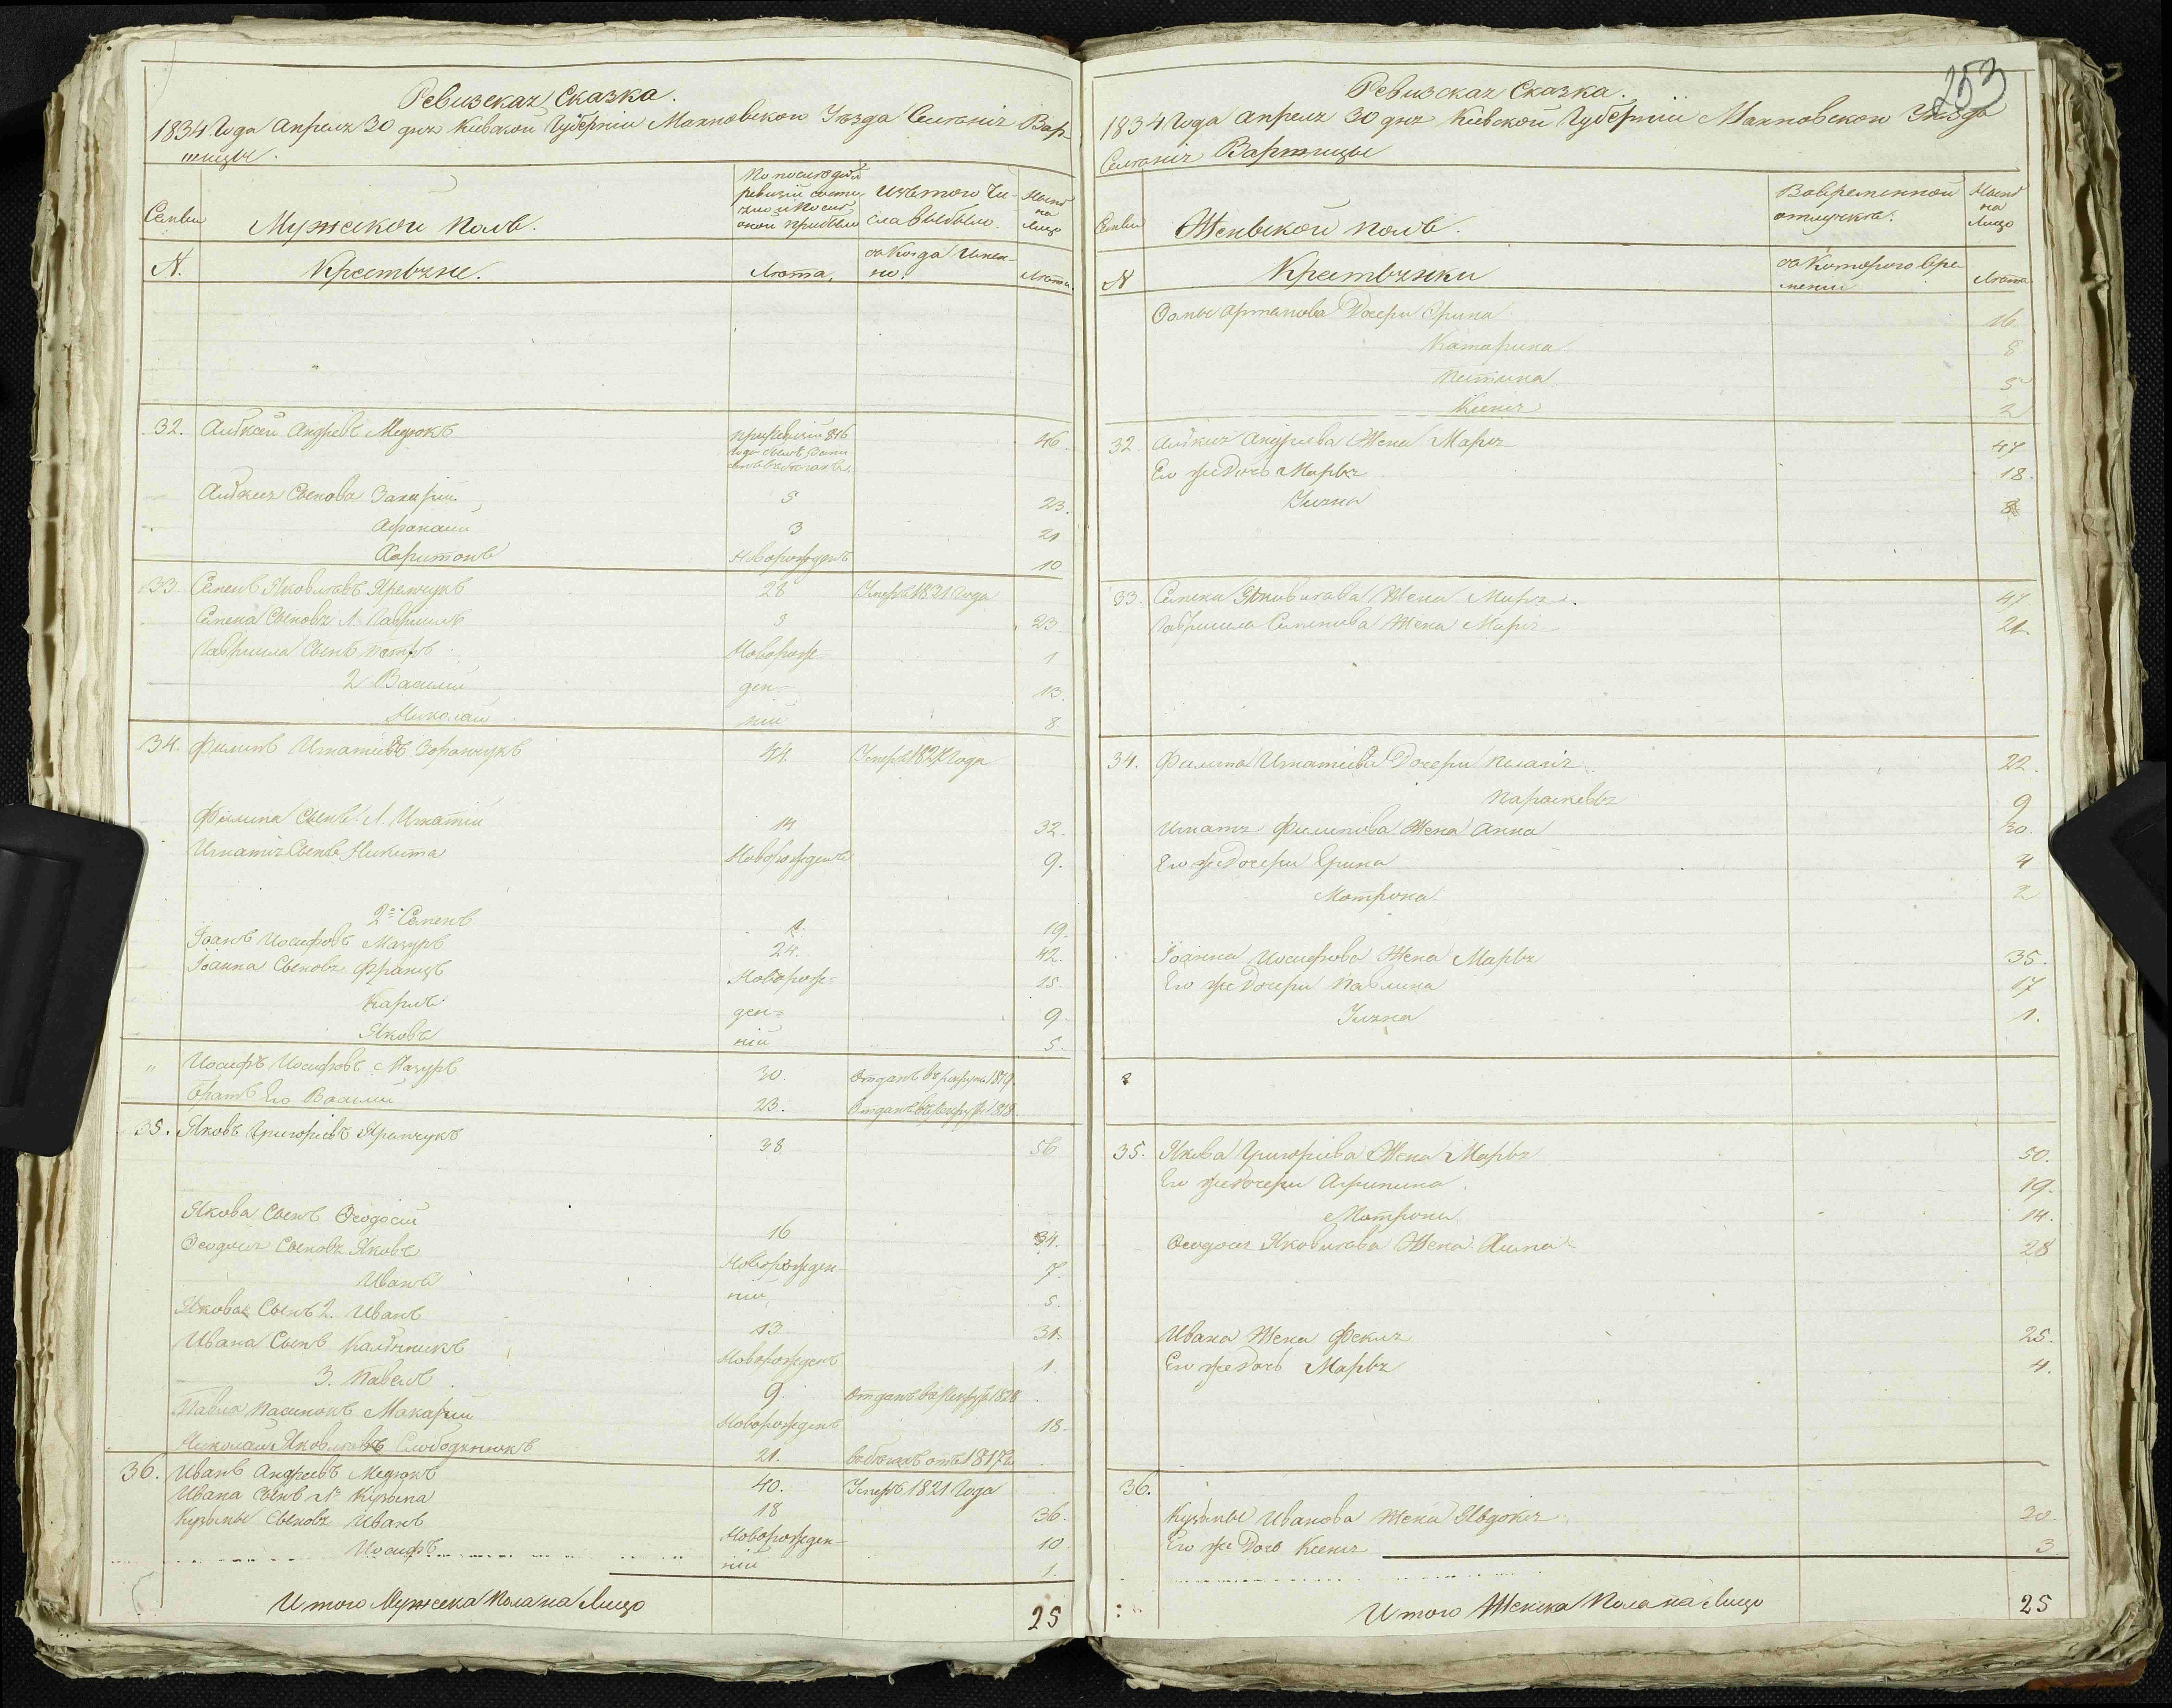 Ревизская Сказка.
1834 Года Апреля 30 дня Киевской Губернии Махновского Уезда Селения Вар-
ницы.
Семьи
Мужеской Полъ.
По последней ревизии состояло и после оной прибыло
Изъ того Числа выбыло
Ныне на Лицо
№.
Крестьяне.
Лета.
Когда Имен-
но.
Лета.
32. Алексей Андреевъ Медюкъ 46.
Алексея Сыновья Захарий 5 23.
Афанасий 3 21
Харитонъ Новорожденъ 10
33. Семенъ Яковлевъ Яремчукъ 28 Умеръ 1821 Года
Семена Сыновья 1. Гавриилъ 3 23
Гавриила Сынъ Петръ Воворож- 1
2 Василий ден- 13.
Николай ний 8.
34. Филипъ Игнатиевъ 44. Умеръ 1827 Года
Филипа Сынъ 1. Игнатий 14 32.
Игнатия Сынъ Никита Новорожденъ 9.
2й Семенъ 1. 19.
Иоанъ Иосифовъ Мазуръ 24. 42.
Иоанна Сыновья Францъ Новорож- 15.
Карлъ ден- 9.
Яковъ ний 5.
" Иосифъ Иосифовъ Мазуръ 30. Отданъ в рекруты 1819.
Братъ Его Василий 23. Отданъ въ Рекруты 1818
35. Яковъ Григориевъ Яремчукъ 38 56
Якова Сынъ Феодосий 16 34.
Феодосия Сыновья Яковъ Новорожден- 7.
Иванъ ний 5.
Якова Сынъ 2. Иванъ 13 31.
Ивана Сынъ Калинникъ Новорожденъ 1.
3. Павелъ 9. Отданъ въ Рекруты 1828
Павла Пасинокъ Макарий Новорожденъ 18.
Николай Яковлевъ Слободянюкъ 21. в бегахъ отъ 1817
36. Иванъ Андреевъ Медюкъ 40. Умеръ 1821 Года
Ивана Сынъ 1й Кузьма 18 36.
Кузьмы Сыновья Иванъ Новорожден- 10.
Иосифъ ний 1.
Итого Мужеска Пола на Лицо 25
253
Ревизская Сказка.
1834 Года Апреля 30 дня Киевской Губернии Махновского Уезда
Селения Варницы
Семьи
Женьской полъ.
Во временной отлучке.
Ныне на Лицо
№
Крестьянки
съ Которого Вре-
мени
Лета
Дочери Ирина 16
Катарина 8
5
Ксения 2
32. Алексея Андреева Жена Мария 47
Его же Дочь Марья 18.
Улияна 8
33. Семена Яковлева Жена Мария 47
Гавриила Семенова Жена Мария 21.
34. Филипа Игнатиева Дочери Пелагия 22.
Параскевья 9
Игнатия Филипова Жена Анна 30.
Его же Дочери Ирина 4
Матрона 2
Иоанна Иосифова Жена Марья 35.
Его же Дочери Павлина 17
Улияна 1.
35. Якова Григориева Жена Марья 50.
Его же Дочери Агрипина 19.
Матрона 14.
Феодосия Яковлева Жена 28
Ивана Жена Фекла 25.
Его же Дочь Марья 4.
36.
Кузьмы Иванова Жена Явдокия 30.
Его же Дочь Ксения 3
Итого Женска Пола на Лицо 25